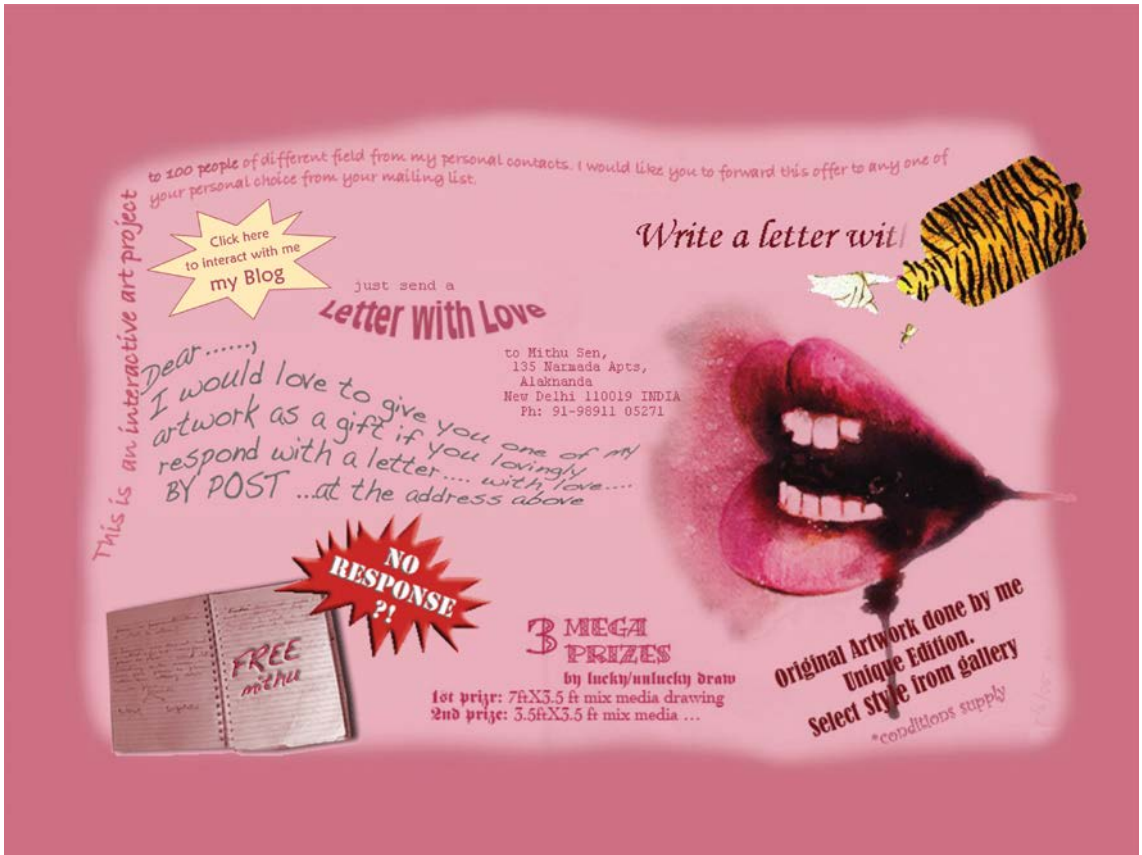 This is an interactive art project
to 100 people of different field from my personal contacts. I would like you to forward this offer to any one of
your personal choice from your mailing list.
Click here
to interact with me
my Blog
Write a letter wit
just send a
Letter with Love
to Mithu Sen,
135 Narmada Apts,
Alaknanda
New Delhi 110019 INDIA
Ph: 91-98911 05271
Dear......,
I would love to give you one of my
artwork as a gift if you lovingly
respond with a letter.... with love....
BY POST ...at the address above
NO
RESPONSE
?!
FREE
mithu
3 MEGA
PRIZES
by lucky/unlucky draw
1st prizr: 7ftX3.5 ft mix media drawing
2nd prize: 3.5ftX3.5 ft mix media ...
Original Artwork done by me
Unique Edition.
Select style from gallery
*conditions supply